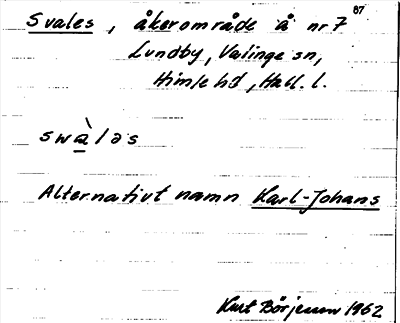 87
Svales, åkerområde å nr 7
Lundby, Valinge sn,
Himle hd, Hall. l.
swàləs
Alternativt namn Karl-Johans
Kurt Börjesson 1962